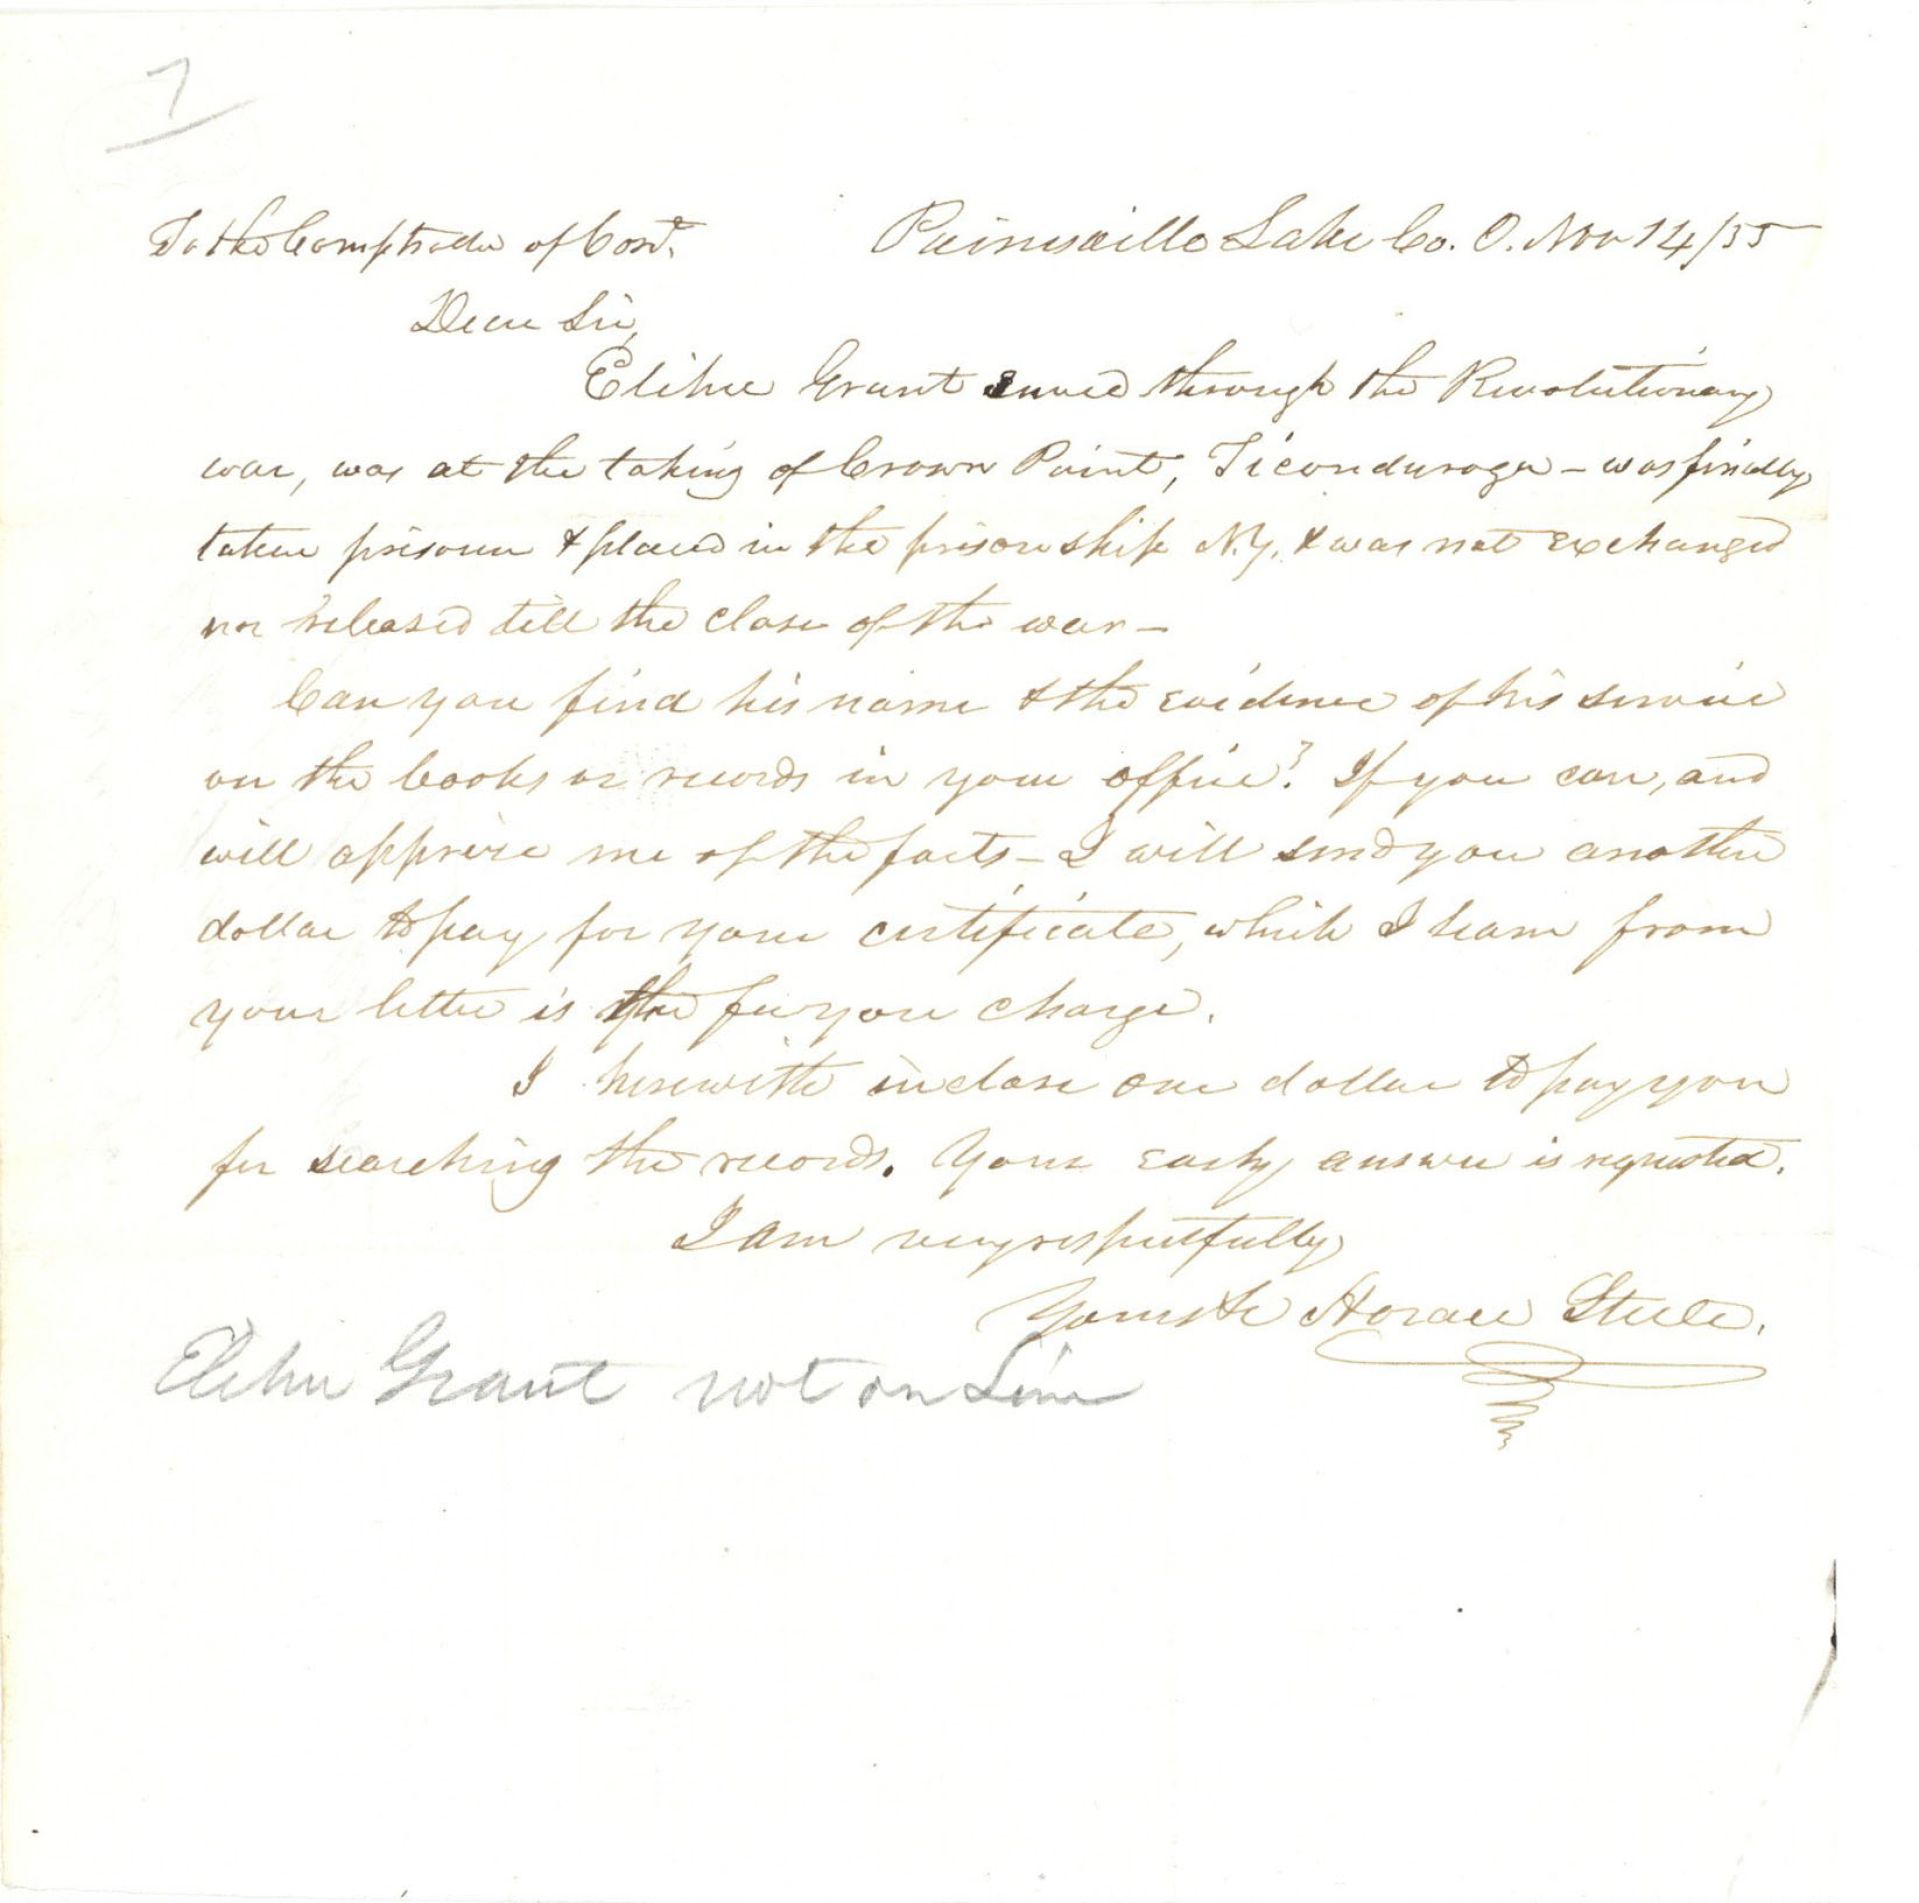 7
To the Comptroller of Cont. Painesville Lake Co. O. Nov 14/55
Dear Sir,
Elihu Grant served through the Revolutionary
war, was at the taking of Crown Point, Ticonderoga – was finally
taken prisoner & placed in the prison ship N.Y. & was not exchanged
nor released till the close of the war –
Can you find his name & the evidence of his service
on the books or records in your office? If you can, and
will apprise me of the facts – I will send you another
dollar to pay for your certificate, which I learn from
your letter is the fee you charge.
I herewith inclose one dollar to pay you
for searching the records. Your early answer is requested.
I am very respectfully
Yours &c Horace Steele.
Elihu Grant not on